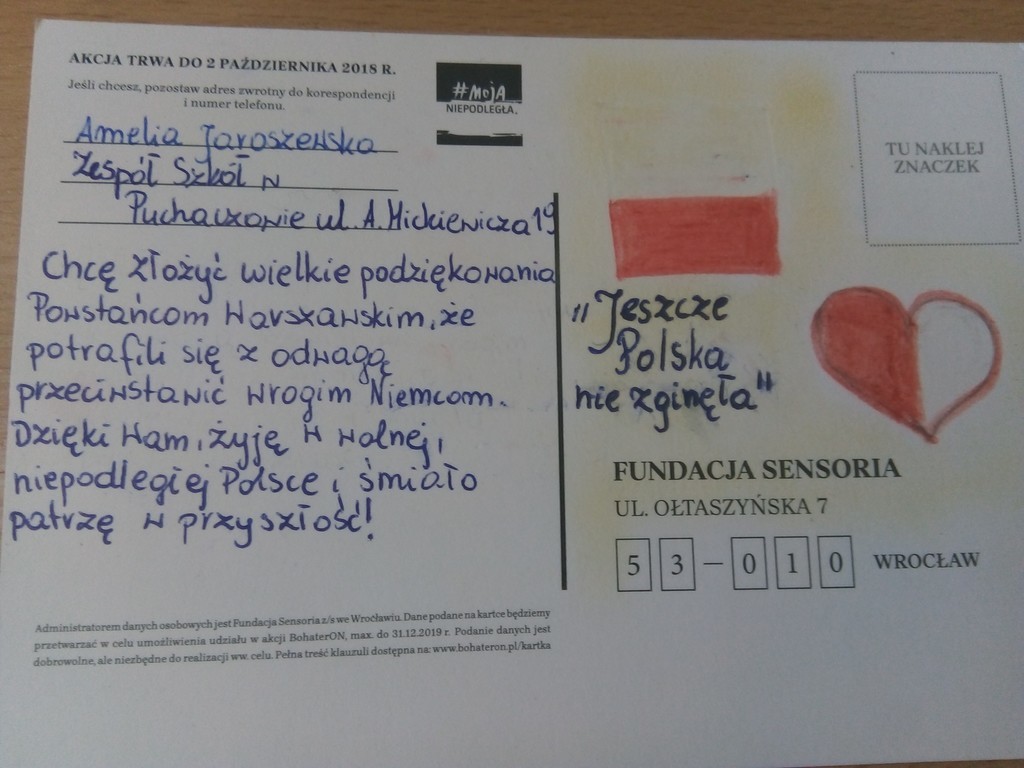 AKCJA TRWA DO 2 PAŹDZIERNIKA 2018 R.
Jeśli chcesz, pozostaw adres zwrotny do korespondencji
i numer telefonu.
#MOJA
NIEPODLEGŁA.
Amelia Jaroszewska
Zespół Szkół w
Puchaczowie ul. A. Mickiewicza 19
Chcę złożyć wielkie podziękowania
Powstańcom Warszawskim, że
potrafili się z odwagą
przeciwstawić wrogim Niemcom.
Dzięki Wam, żyję w wolnej,
niepodległej Polsce i śmiało
patrzę w przyszłość!
Administratorem danych osobowych jest Fundacja Sensoria z/s we Wrocławiu. Dane podane na kartce będziemy
przetwarzać w celu umożliwienia udziału w akcji BohaterON, max. do 31.12.2019 r. Podanie danych jest
dobrowolne, ale niezbędne do realizacji ww. celu. Pełna treść klauzuli dostępna na: www.bohateron.pl/kartka
TU NAKLEJ
ZNACZEK
"Jeszcze
Polska
nie zginęła"
FUNDACJA SENSORIA
UL. OŁTASZYŃSKA 7
53-010 WROCŁAW